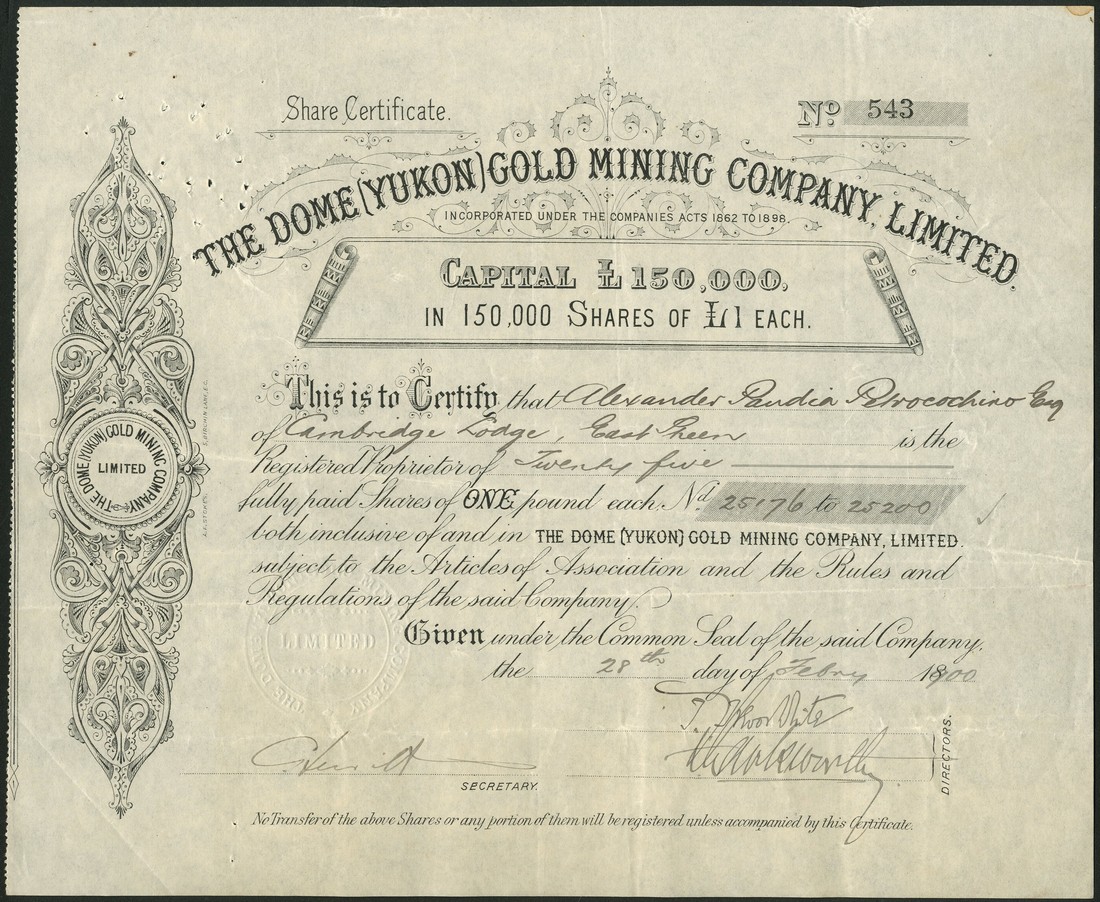 Share Certificate.
No. 543
THE DOME (YUKON) GOLD MINING COMPANY, LIMITED.
INCORPORATED UNDER THE COMPANIES ACTS 1862 TO 1898.
CAPITAL £150,000,
IN 150,000 SHARES OF £1 EACH.
This is to Certify that Alexander Pandia Petrocochino Esq
of Cambridge Lodge, East Sheen is the
Registered Proprietor of Twenty five
fully paid Shares of ONE pound each Nd. 25176 to 25200
both inclusive of and in THE DOME (YUKON) GOLD MINING COMPANY, LIMITED.
subject to the Articles of Association and the Rules and
Regulations of the said Company.
Given under the Common Seal of the said Company,
the 28th day of Febry 1900
DIRECTORS.
SECRETARY.
No Transfer of the above Shares or any portion of them will be registered unless accompanied by this Certificate.
THE DOME (YUKON) GOLD MINING COMPANY
LIMITED
LIMITED